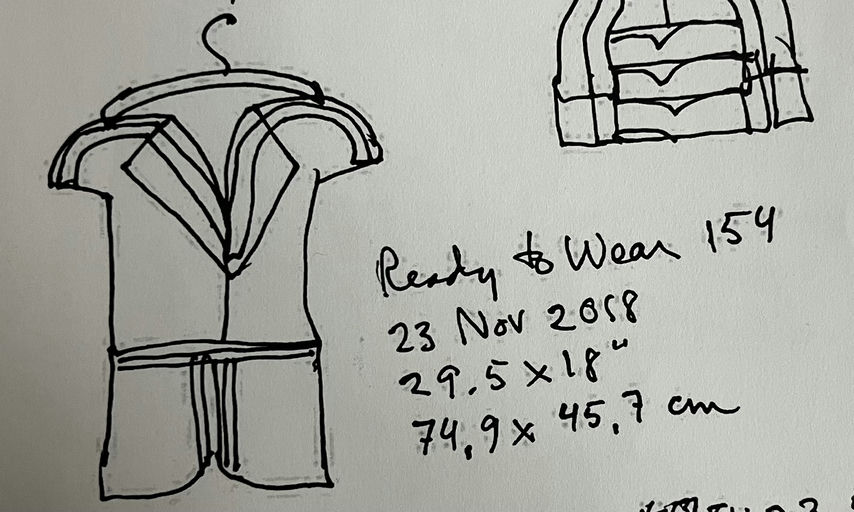 Ready to Wear 154
23 Nov 2018
29.5 x 18"
74,9 x 45,7 cm